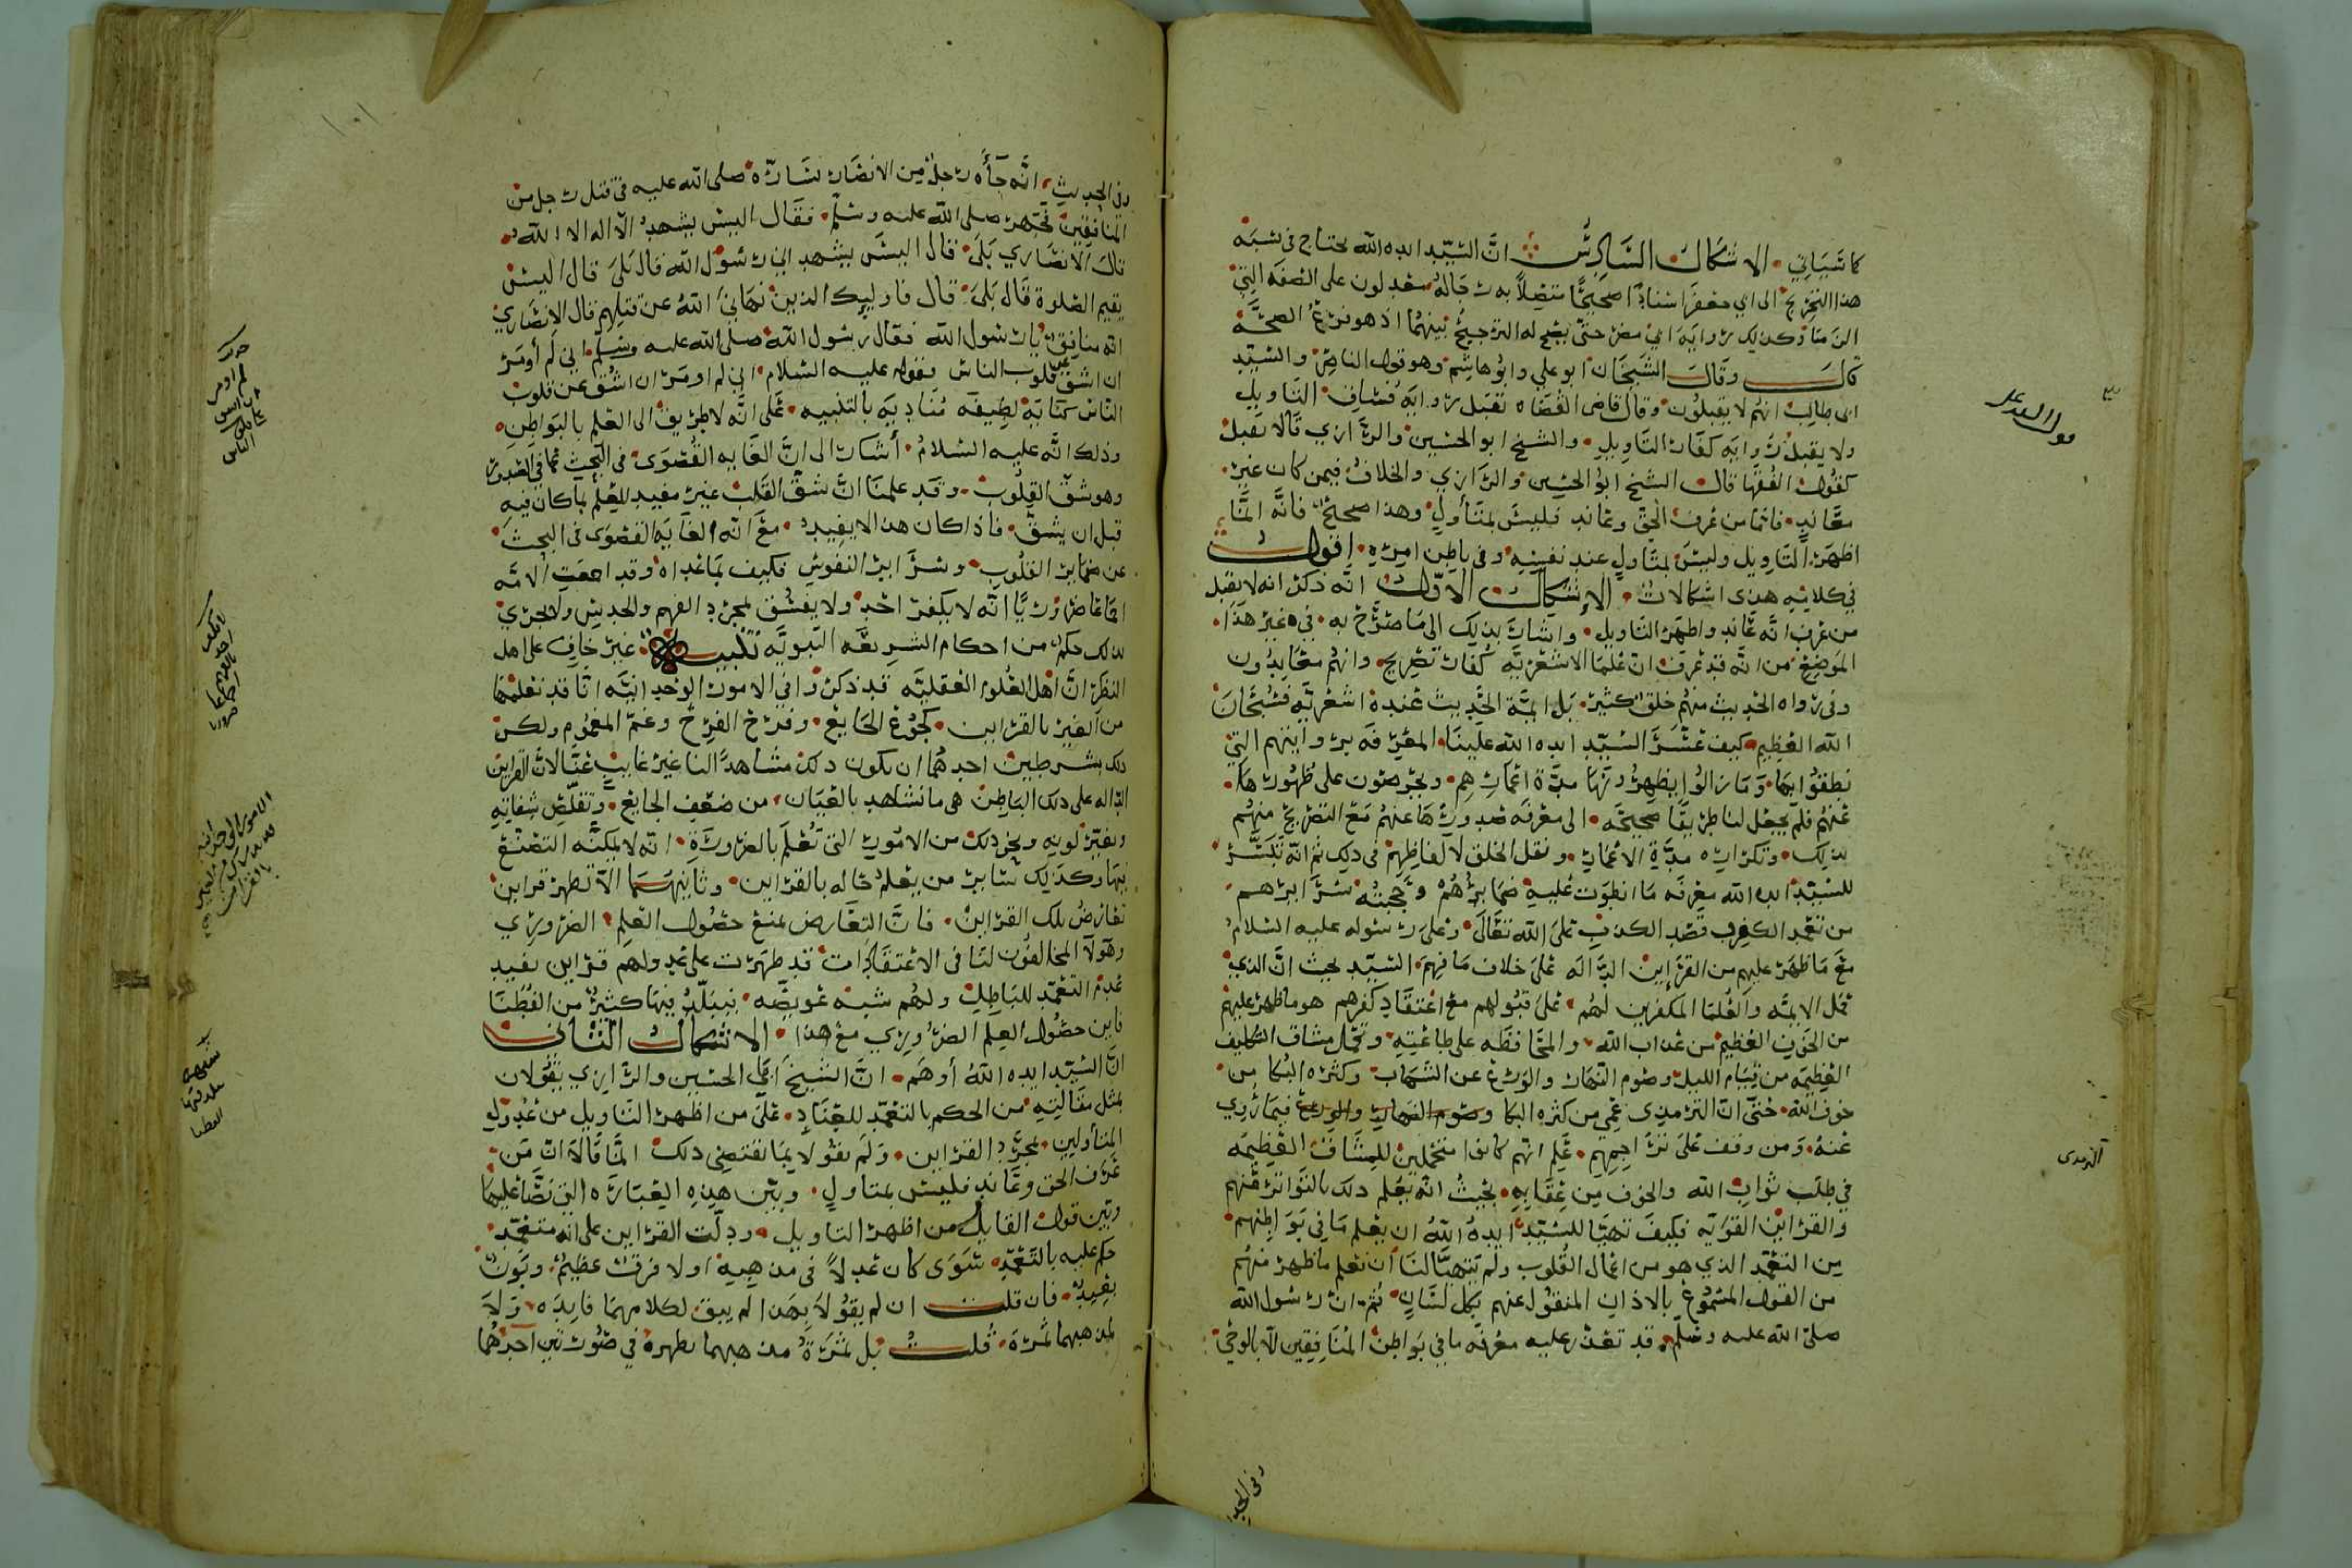 كما سَيَاتي. الاشكال السَّادِسُ انَّ السَّيّد ايده الله يحتاج في نسْبَه
هذا التخريج الى ابي جعفر اسنادًا صحيحًا متصلاً به رجاله معدلون على الصفه التي
قال وقال الشيخان ابو علي وابُو هاشم وهو قول الناصر والسَّيّد
ابي طالب انهم لا يقبلون. وقال قاضى القضاه تقبل روايَة فُسّاق التاويل
ولا يقبل رِوايَه كفّار التاويل. والشيخ ابو الحسين والرَّازي قالا تقبل
كقول الفُقَها قال الشيخ ابوُ الحسين والرازي والخلافُ فيمن كان غير
معَاندٍ. فاما من عَرف الحقّ وعَاند فليسَ بمتَأولٍ وهذا صحيحٌ فانَّه انمَّا
اظهَرَ التَّاوِيل وليسَ بمتاولٍ عند نفسِه وفي باطن امره. اقول
في كلامِه هذى اشكالات. الاشكال الاوّل انّه ذكر انه لا يقبل
من عرف انّه عَاند واظهَرَ التاويل. واشارَ بذلك الى مَا صَرَّح به. في غير هَذَا.
الموَضِع من انَّه قد عَرفَ انّ عُلمَا الاشعَريّه كُفار تصَريح. وانهم معَاندُون
وفي رواه الحَديث منهُم خلق كثير. بَل ايمّة الحَديث عَنده اشعَريّه فسُبحَانَ
الله العظِيم. كيف تَيَسَّرَ السَّيّد ايده الله علَينَا المعرفَه بروايتهم التي
نطقوُا بهَا. وَمَا زالوُا يظهِرُونَهَا مدَّة اعمَارِهم. ويحَرصُون على ظهُورهَا.
عَنهُم فلَم يجعَل لنا طرَيقًا صحيحَه. الى معَرفَه صُدورهَا عنهُم مَع التصريح منهُم
بذلك. وتكراره مدَّة الاعمَار. ونقل الخلق لالفاظِهم في ذلك ثم انّه تَيَسَّر
للسَّيّد ايده الله معَرفَه مَا انطوَت عَليه ضمَايرُهُمْ وحَجبَتْه سَرَايرهم
من تعَمد الكفر وقَصد الكذب عَلى الله تعَالى. وعَلى رسُوله عليه السَّلامُ
معَ مَا ظَهَر عليهم من القرَاين الدَّالَه عَلى خلاف مَا فهِمَ السَّيّد بحيث انَّ الذي
حمَل الايمّه والعُلمَا المكفرين لهُم. عَلى قبُولهم مع اعتقَادِ كفرهم هو ما ظهر عليهم
من الخَوف العَظيم من عَذاب الله. والمحَافظه على طَاعَتِهِ وتحمّل مشاق التكليف
العَظِيمَه من قيَام الليل وصَوم النهَار والوَرَع عن الشبهَات وكثره البُكا من
خوف الله. حتىّ انّ الترمذى عَمِي من كثره البكا وصَوم النهار والورع فيمَا رُوِي
عَنهُ. وَمن وقف عَلى ترَاجمهم. عَلِم انهم كانوا متحَملين للمشَاقّ العَظيمَه
في طلَب ثوابِ الله والخوف من عِقابِهِ. بحيثُ انّه يعُلم ذلك بالتَّواتر عَنهُم
والقرَاين القوَيّه فكيفَ تهيَّا للسَّيّد ايده الله ان يعَلم مَا في بَوَاطِنهم.
من التعَمد الذي هو من اعمَال القُلوب ولم يَتهيَّا لنَا أن نعَلم ما ظهرَ منهُم
من القول المسَمُوع بالاذان المنقوُل عنهم بكل لسَانٍ. ثم انَّ رسُول الله
صلىّ الله عليه وسَلّم. قد تعَذر عليه معَرفَه ما في بَواطن المنَافِقين الا بالوَحي
وفي الحد
قول السيد على
الترمذى
وفي الحَديثِ انَّه جَاَه رَجلٌ مِن الانصَار يسَارّه صلى الله عليه في قتل رجل من
المنَافقين فجهَر صلى الله عليه وسَلّم. فقَال اليسَ يشهَدُ الّا اله الا الله.
قال الانصَاري بَلى. قال اليسَ يشهد اني رسُول الله قال بَلى قال اليسَ
يقيم الصَلوة قَال بَلى. قال فاوليك الذين نهَاني اللهُ عن قتلهم قال الانصَاري
انّه منافق يا رسُول الله فقال رسُول الله صلى الله عليه وسَلم. اني لم أومَر
ان اشقّ عن قلوب الناس فقوله عليه السَّلام اني لم اومَر ان اشقّ عن قلوب
النّاس كنايَة لطيفه مُناديَه بالتنبيه. عَلى انَّه لا طَريق الى العَلم بالبَواطن.
وذلك انَّه عليه السَّلامُ. أشَار الى انَّ الغَايه القُصوَى في البَحث عما في الصدور
وهو شقّ القلوُب. وقَد علمنَا انَّ شقّ القَلب غيرَ مفيد للعِلم بمَا كان فيه
قبل ان يشقّ. فاذا كان هذا لا يفيد. معَ انّه الغَايَه القصْوَى في البحث.
عن ضمَاير القلوُب. وسَرَاير النفوسِ فكيف بمَا عَداه. وقد اجمعَت الامَّه
اجمَاعًا ضرُوريًّا انّه لا يكفر احَد ولا يفسَّق بمجرد الفهم والحدس ولا يجري
بذلك حكمٌ من احكام الشريعَه النبَويَّه تنبيه غيرَ خافٍ على اهل
النظرَ انَّ اهل العُلوم العَقليَّه قد ذكرُوا في الامور الوَجدانيَّه انّا قد نعَلمهَا
من الغَير بالقرَاين. كجُوع الجَايع. وفرَح الفرح وغمّ المغَموُم ولكن
ذلك بشرطين احدهمُا ان يكون ذلك مشاهدًا لنا غيرَ غايب عَنّا لانّ القراين
الدّاله على ذلك البَاطِن هي ما نشَاهد بالعيَان. من ضعَف الجايع. وتقلّص شفاتِهِ
وتغيّر لونِه ونحو ذلك من الامُور التي تُعْلَم بالضرورَة. انّه لا يمكنّه التصَنّع
بهَا وكذلك سَاير من يعَلمُ حَاله بالقرَاين. وثانيهما الّا تظهرَ قراين
تعَارضُ تلك القرَاين. فانَّ التعَارض يمنع حصُول العلم الضروري
وهَولا المخالفُون لنَا في الاعتقَادَات قد ظهَرت على عَدولهم قرَاين تفيد
عَدم التعَمّد للبَاطِل ولهُم شبه عَويصَه. يتبَلّدُ فيهَا كثيرٌ من الفُطَنَا
فاين حصُول العِلم الضرُوري معَ هذا. الاشكال الثَّاني
انّ السَّيّد ايده اللهُ أوهَم. انَّ الشيخ ابي الحسَين والرَّازي يقوُلان
بمثل مقَالتِه من الحكم بالتعَمّد للعِنَاد. عَلى من اظهرَ التَّاويل من عُدُول
المتأولين. بمجرَّد القرَاين. وَلم يقوُلا بمَا يقتضِي ذلك انمَّا قَالا انَّ مَن
عَرف الحق وعَاند فليس بمتاولٍ. وبَين هذه العبَارَه التي نَصَّا عليهَا
وبَين قول القايل من اظهرَ التاويل. ودلّت القرَاين على انّه متعَمّد.
حكم عليه بالتعَمّد سَوَى كان عَدلاً في مذهبه اولا فرقٌ عظيمٌ. وبَونٌ
بعَيدٌ. فان قلت ان لم يقوُلا بهَذا لم يبقَ لكلامهمَا فايدَه. وَلا
لمذهبهما ثمرَة. قلت بَل ثمَرَةُ مذهبهما تظهر في صوُرتين احَدهُمَا